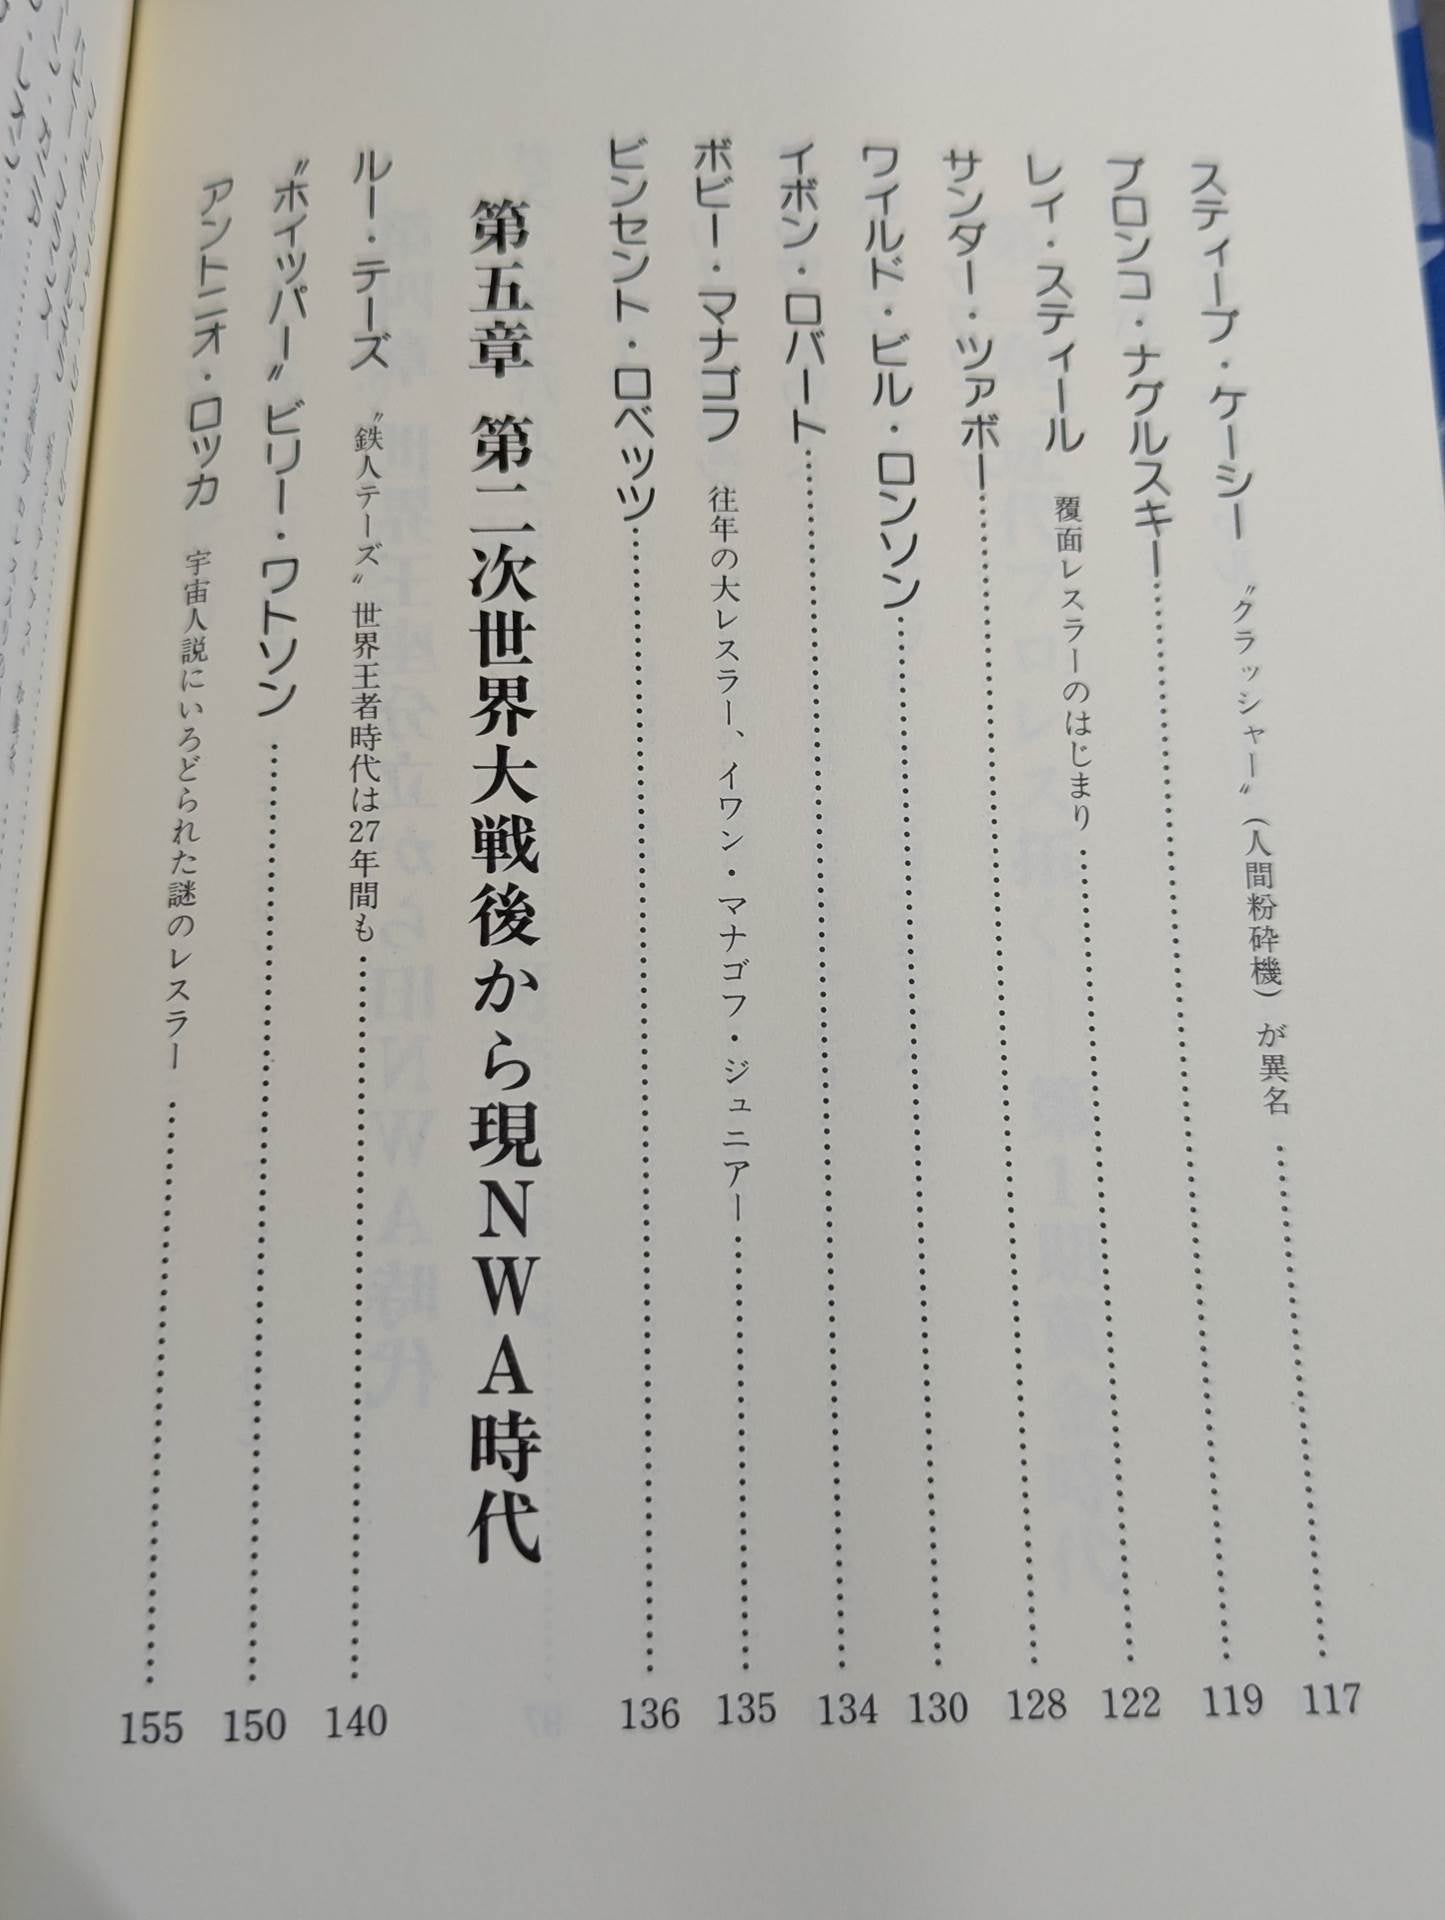 スティーブ・ケーシー　〝クラッシャー〟(人間粉砕機)が異名…………117
ブロンコ・ナグルスキー…………119
レイ・スティール　覆面レスラーのはじまり…………122
サンダー・ツァボー…………128
ワイルド・ビル・ロンソン…………130
イボン・ロバート…………134
ボビー・マナゴフ　往年の大レスラー、イワン・マナゴフ・ジュニアー…………135
ビンセント・ロベッツ…………136
第五章　第二次世界大戦後から現NWA時代
ルー・テーズ　〝鉄人テーズ〟世界王者時代は27年間も…………140
〝ホイッパー〟ビリー・ワトソン…………150
アントニオ・ロッカ　宇宙人説にいろどられた謎のレスラー…………155